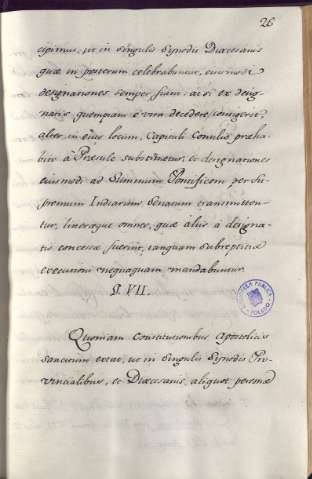 26
cipimus, ut in singulis Synodis Dioecesanis
quae in posterum celebrabuntur, eiusmodi
designationes semper fiant: ac si ex desig-
natis quempiam è vita decedere contigerit,
alter in eius locum, Capituli Consilio prae ha-
bito à Praesule substituatur, et designationes
eiusmodi ad Summum Pontificem per Su-
premum Indiarum Senatum transmittan-
tur, literaeque omnes, quae aliis à designa-
tis concessae fuerint, tanquam subreptitiae
executioni nequaquam mandabuntur.
§. VII.
Quoniam Constitutionibus Apostolicis
sancitum erat, ut in singulis Synodis Pro-
vincialibus, et Dioecesanis aliquot personae
TOLEDO